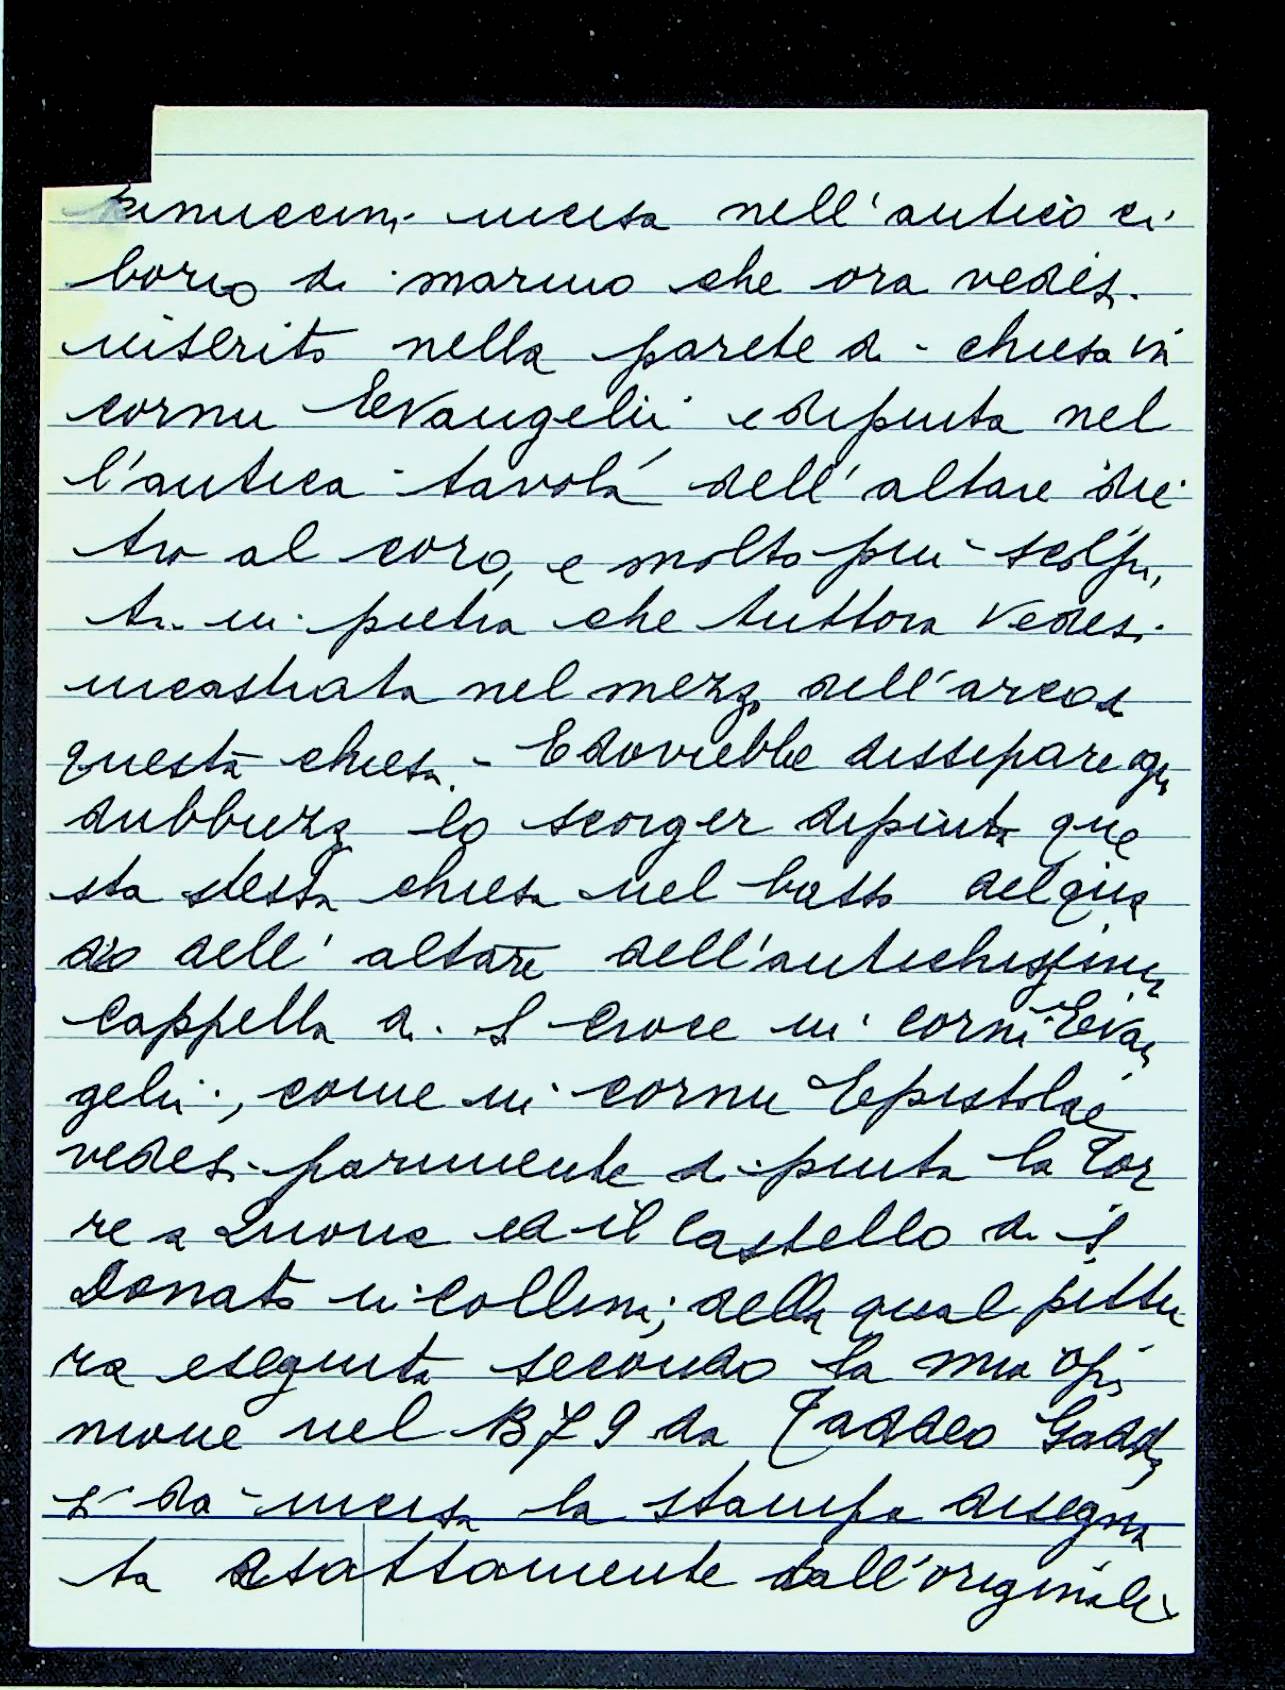 Rinuccini incisa nell'antico ci-
borio di marmo che ora vedesi
inserito nella parete di chiesa in
cornu Evangelii e dipinta nel
l'antica tavola dell'altare die-
tro al coro, e molto più scolpi-
ta in pietra che tuttora vedesi
incastrata nel mezzo dell'arco di
questa chiesa. - E dovrebbe dissipare ogni
dubbiezza lo scorger dipinta que
sta stessa chiesa nel basso del qua
dro dell'altare dell'antichissima
Cappella di S Croce in cornu Evan
gelii, come in cornu Epistolae
vedesi parimente dipinta la Tor
re a Quona ed il Castello di S
Donato in Collina; della qual pittu
ra eseguita secondo la mia opi
nione nel 1379 da Taddeo Gaddi
si dà incisa la stampa disegna
ta esattamente dall'originale